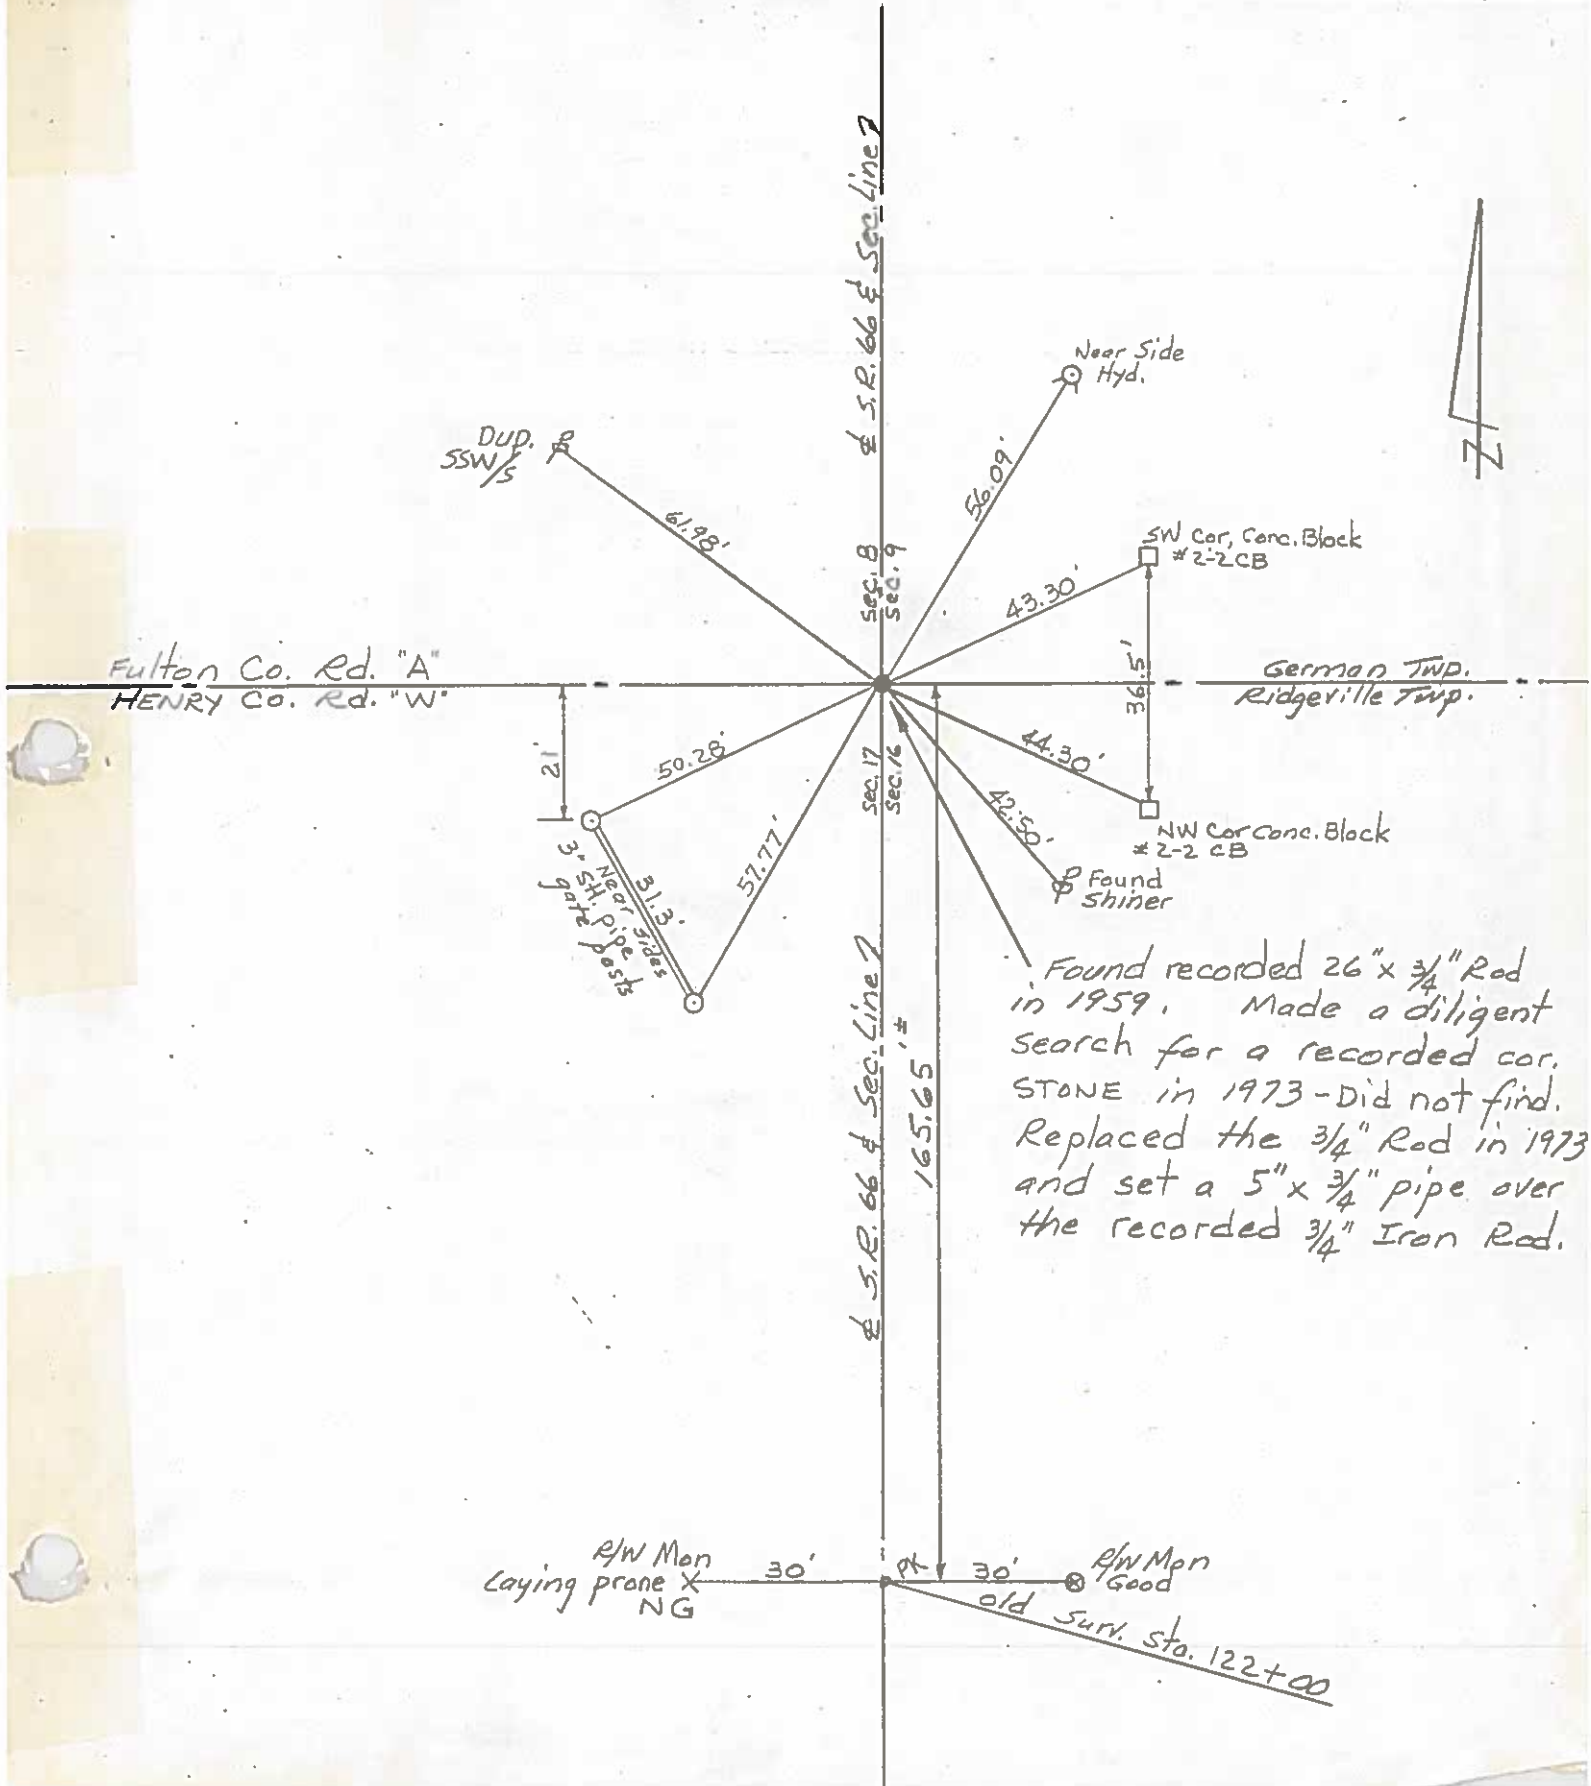 ℄ S.R. 66 & Sec. Line
Near Side
Hyd.
N
DUP.
SSW/S
61.98'
56.09'
SW Cor, Conc. Block
# 2-2 CB
43.30'
Sec. 8
Sec. 9
36.5'
Fulton Co. Rd. "A"
HENRY Co. Rd. "W"
German Twp.
Ridgeville Twp.
21'
50.28'
57.77'
Sec. 17
Sec. 16
44.30'
42.50'
NW Cor Conc. Block
# 2-2 CB
Found
Shiner
31.3'
Near Sides
3" Stl. pipe
gate posts
℄ S.R. 66 & Sec. Line
165.65'±
Found recorded 26" x 3/4" Rod
in 1959. Made a diligent
search for a recorded cor.
STONE in 1973 - Did not find.
Replaced the 3/4" Rod in 1973
and set a 5" x 3/4" pipe over
the recorded 3/4" Iron Rod.
R/W Mon
Laying prone
NG
30'
PK
30'
R/W Mon
Good
old Surv. Sta. 122+00